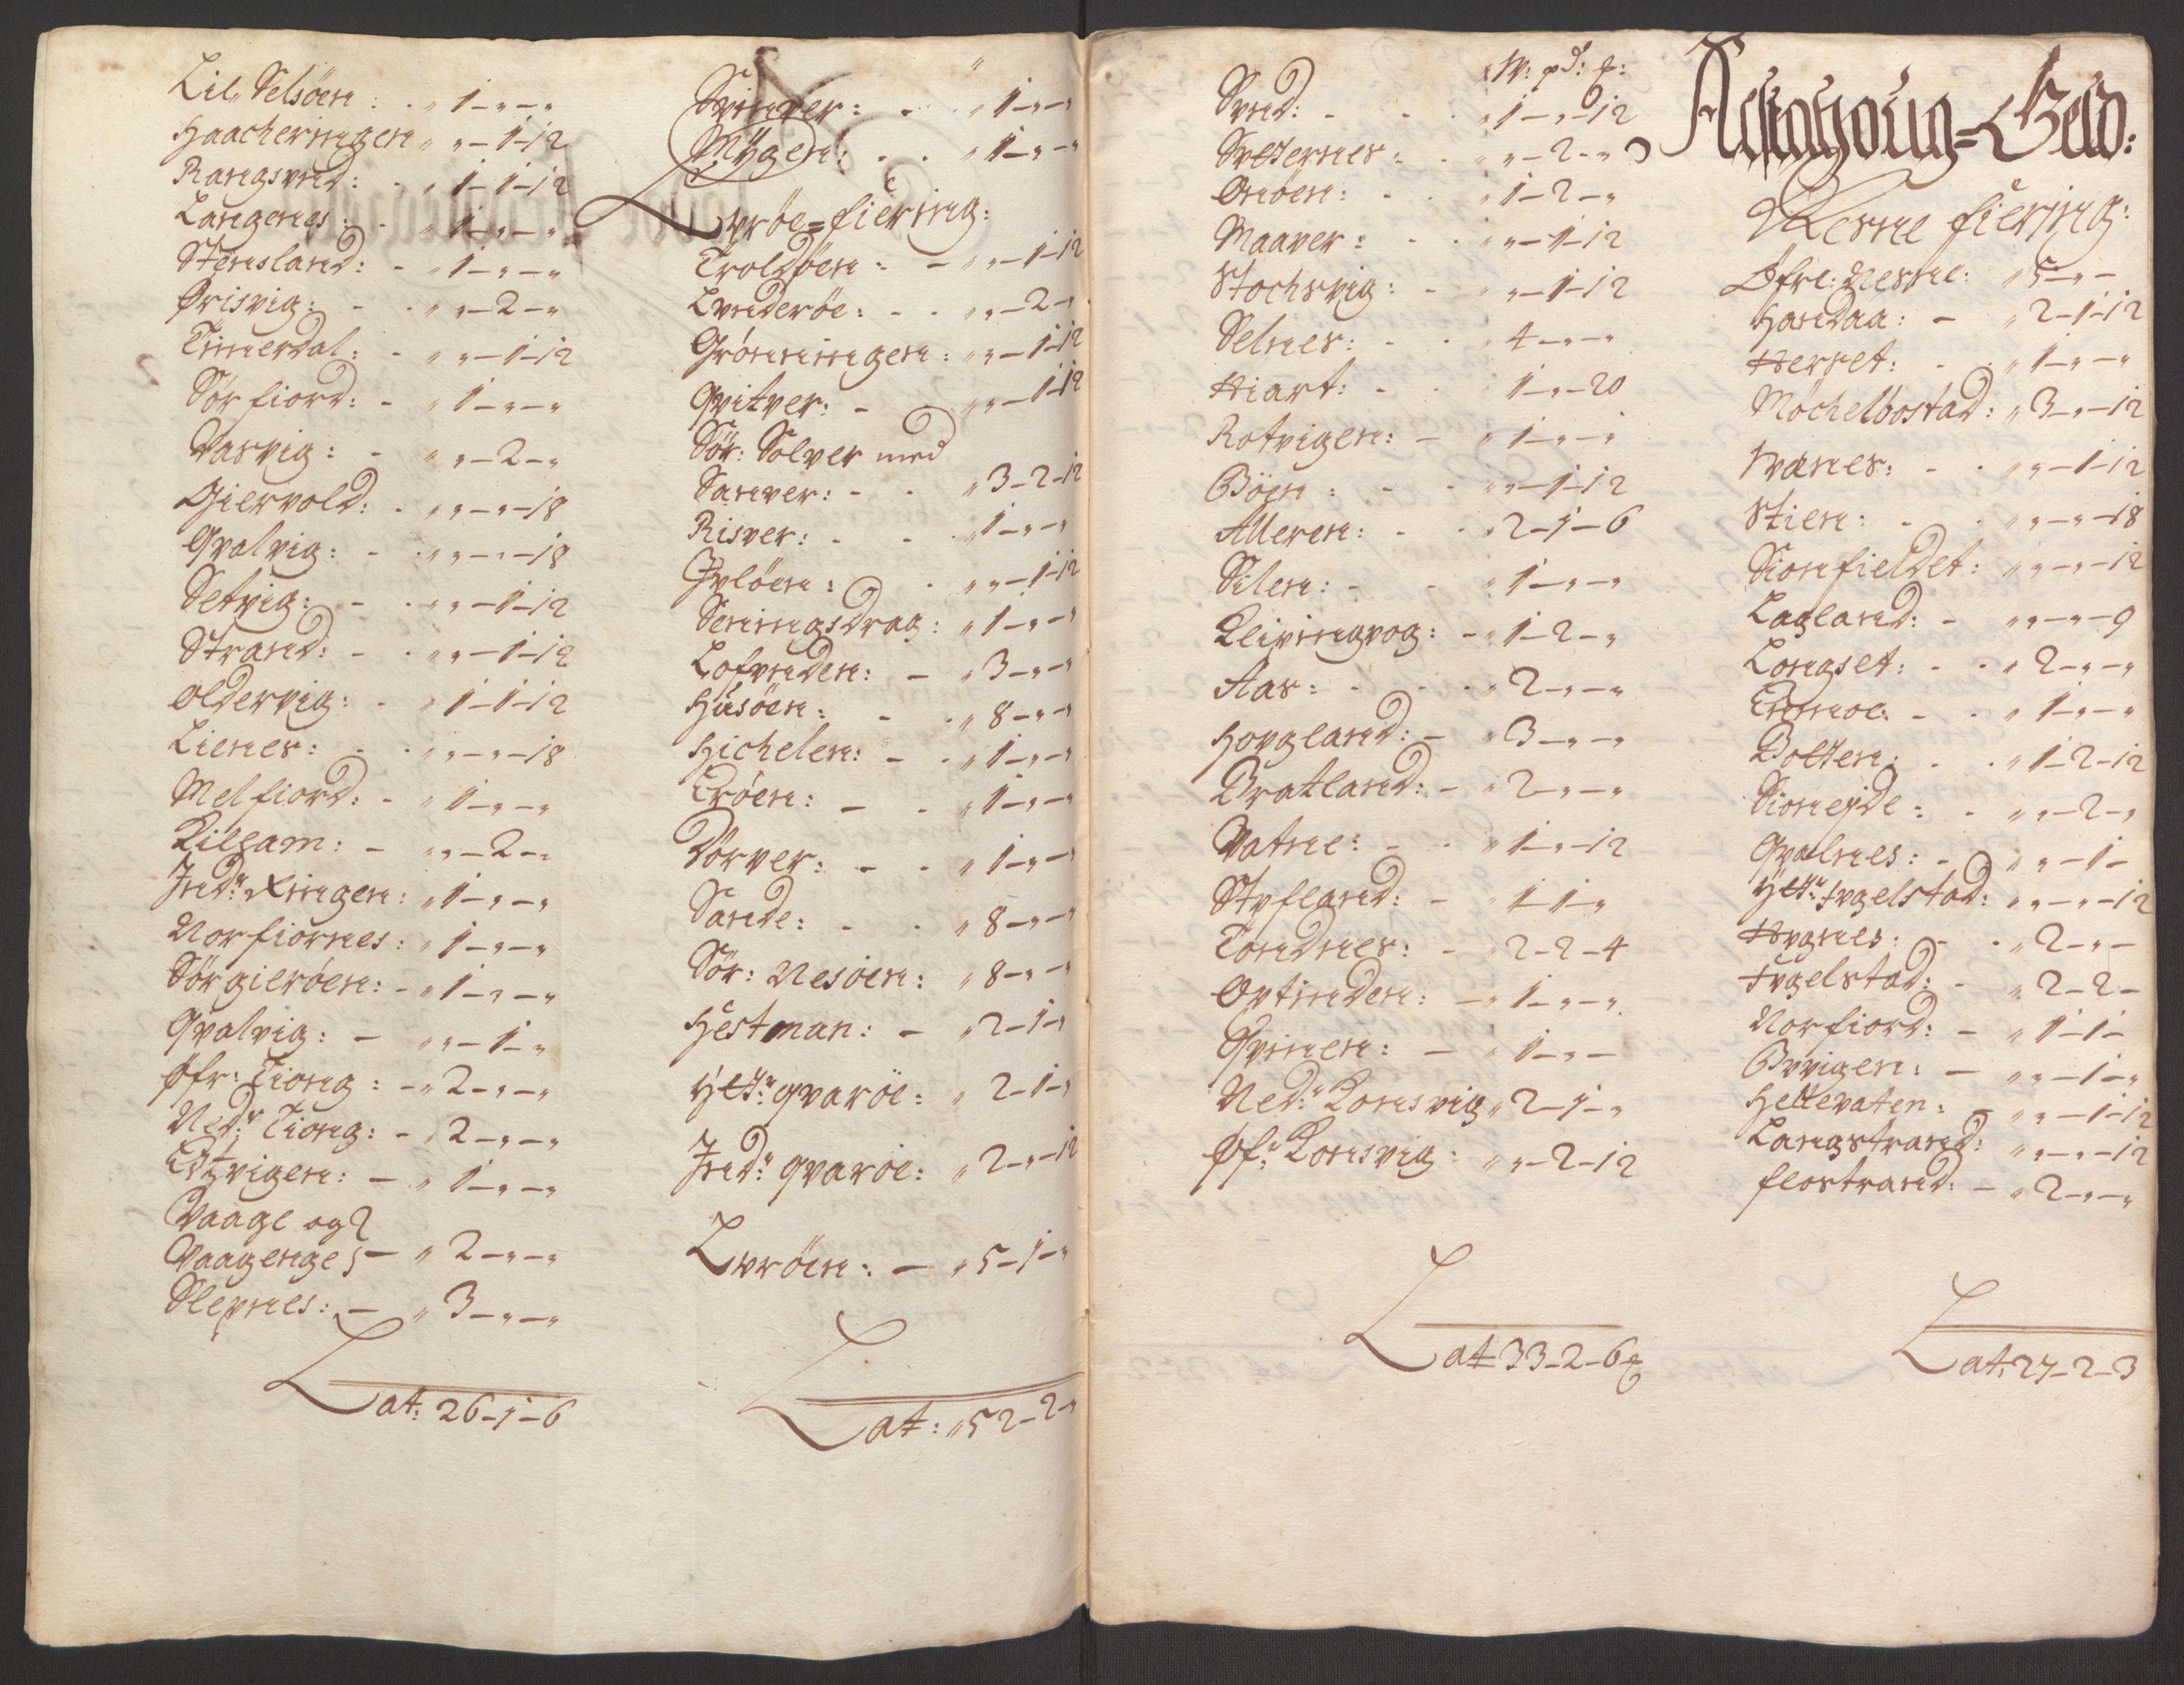 Lil Selsöen: „ 1-„-„
Haacheringen „ „-1-12
Rangsund: - „ 1-1-12
Langenes: - „ 1-„-„
Stensland: - „ 1-„-„
Ørisvig: - „ „-2-„
Tinnerdal: - „ „-1-12
Sörfiord: - „ 1-„-„
Vasvig: - „ „-2-„
Giervold: - „ „-„-18
Qvalvig: - „ „-„-18
Setvig: - „ „-1-12
Strand: - „ „-1-12
Oldervig: - „ 1-1-12
Lienes: - „ „-„-18
Melfiord: - „ 1-„-„
Kilgam: - „ „-2-„
Ind:r Ringen: „ 1-„-„
Norfiornes: „ 1-„-„
Sörgieröen: - „ 1-„-„
Qvalvig: - „ „-1-„
Øfr: Tiong: - „ 2-„-„
Ned:r Tiong: - „ 2-„-„
Edtvigen: - „ 1-„-„
Vaage og
Vaagenge - „ 2-„-„
Slepnes: - „ 3-„-„
Lat: 26-1-6
Svinver: - „ 1-„-„
Mÿgen: - „ 1-„-„
Lvröe=fiering:
Troldöen: - „ „-1-12
Lvnderöe: - „ „-2-„
Grönningen: „ „-1-12
Qvitver: - „ „-1-12
Sör: Solver med
Sanver: - „ 3-2-12
Risver: - „ 1-„-„
Gvlöen: - „ „-1-12
Seningsdrag: „ 1-„-„
Lofvnden: - „ 3-„-„
Husöen: - „ 8-„-„
Hichelen: - „ 1-„-„
Tröen: - „ 1-„-„
Dörver: - „ 1-„-„
Sande: - „ 8-„-„
Sör: Nesöen: „ 8-„-„
Hestman: - „ 2-1-„
Ÿtt:r qvaröe: „ 2-1-„
Ind:r qvaröe: „ 2-„-12
Lvröen: - „ 5-1-„
Lat: „ 52-2-„
W: pd: f:
Svnd: - „ 1-„-12
Svtternes: - „ „-2-„
Onöen: - „ 1-2-„
Maaver: - „ „-1-12
Stochsvig: - „ „-1-12
Selnes: - „ 4-„-„
Hiart: - 1-„-20
Rotvigen: - „ 1-„-„
Böen: - „ „-1-12
Alleren: - 2-1-6
Silen: - „ 1-„-„
Kleivingvog: - „ 1-2-„
Aas: - „ 2-„-„
Hovgland: - „ 3-„-„
Bratland: - „ 2-„-„
Vatne: - „ 1-„-12
Stvfland: - „ 1-1-„
Tondnes: - „ 2-2-4
Ovtinden: - „ 1-„-„
Qvinen: - „ 1-„-
Ned:r Konsvig „ 2-1-„
Øf:r Konsvig: „ „-2-12
Lat 33-2-6
Nesne fiering:
Øfre: Nesne: „ 5-„-
Handaa: - „ 2-1-12
Herset: - „ 1-„-„
Möchelbostad: „ 3-„-12
Svænes: - „ „-1-12
Stien: - „ „-„-18
Sionfieldet: „ „-„-12
Lagland: - „ „-„-9
Longset: - „ 2-„-„
Tommoe: - „ 1-„-„
Bolten: - „ 1-2-12
Sionejde: - „ „-2-„
Qvalnes: - „ „-1-
Ÿtt:r Fvgelstad: „ „-„-12
Hvgnes: - „ 2-„-
Fvgelstad: - „ 2-2-
Norfiord: - „ 1-1-
Bvvigen: - „ „-1-„
Hellevaten: - „ „-1-12
Langstrand: „ „-„-12
flostrand: - „ 2-„-„
Lat: 27-2-3